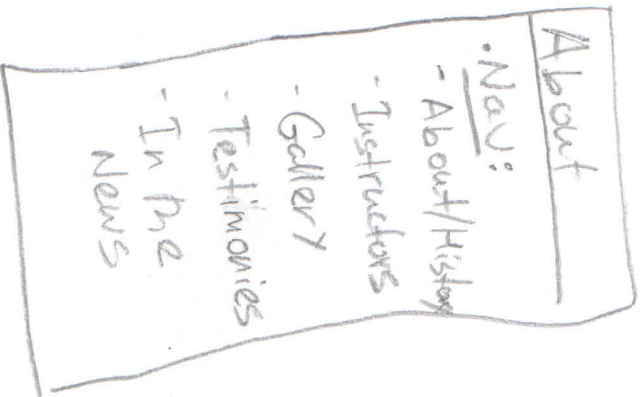 About
• Nav:
- About/History
- Instructors
- Gallery
- Testimonies
- In the
News